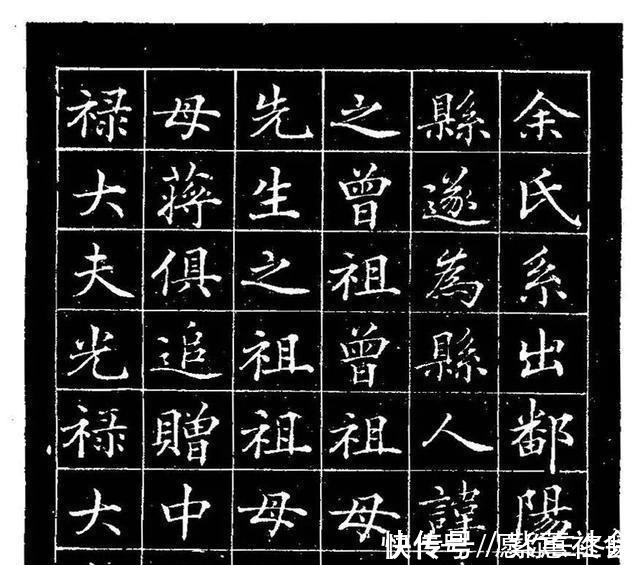 余氏系出鄱陽
縣遂為縣人
之曾祖曾祖母
先生之祖祖母
母蔣俱追贈中
禄大夫光禄大
快传号//